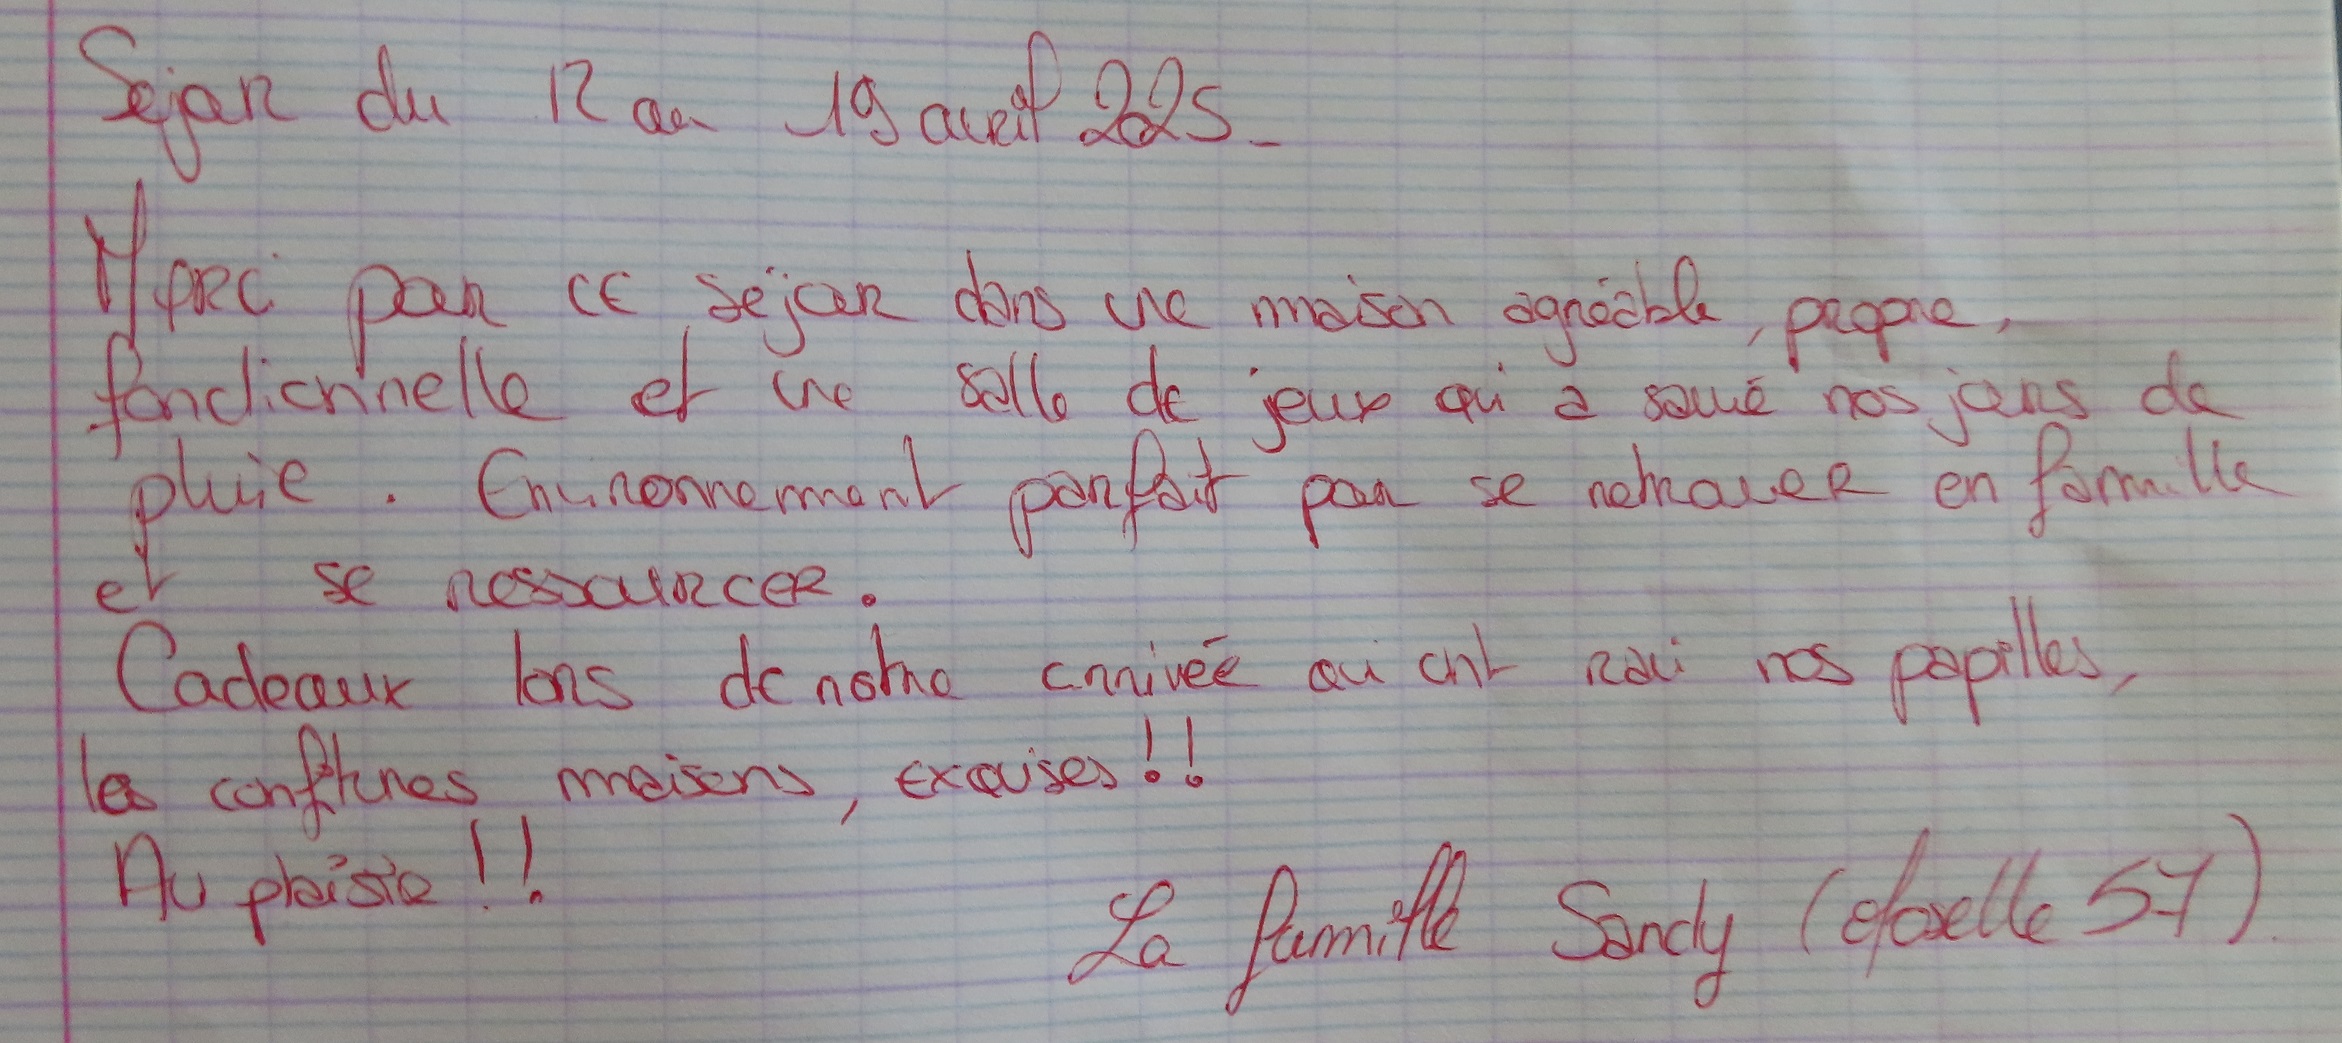 Séjour du 12 au 19 avril 2025.
Merci pour ce séjour dans une maison agréable, propre,
fonctionnelle et une salle de jeux qui a sauvé nos jours de
pluie. Environnement parfait pour se retrouver en famille
et se ressourcer.
Cadeaux lors de notre arrivée qui ont ravi nos papilles,
les confitures maisons, exquises!!
Au plaisir!!
La famille Sandy (Moselle 57).